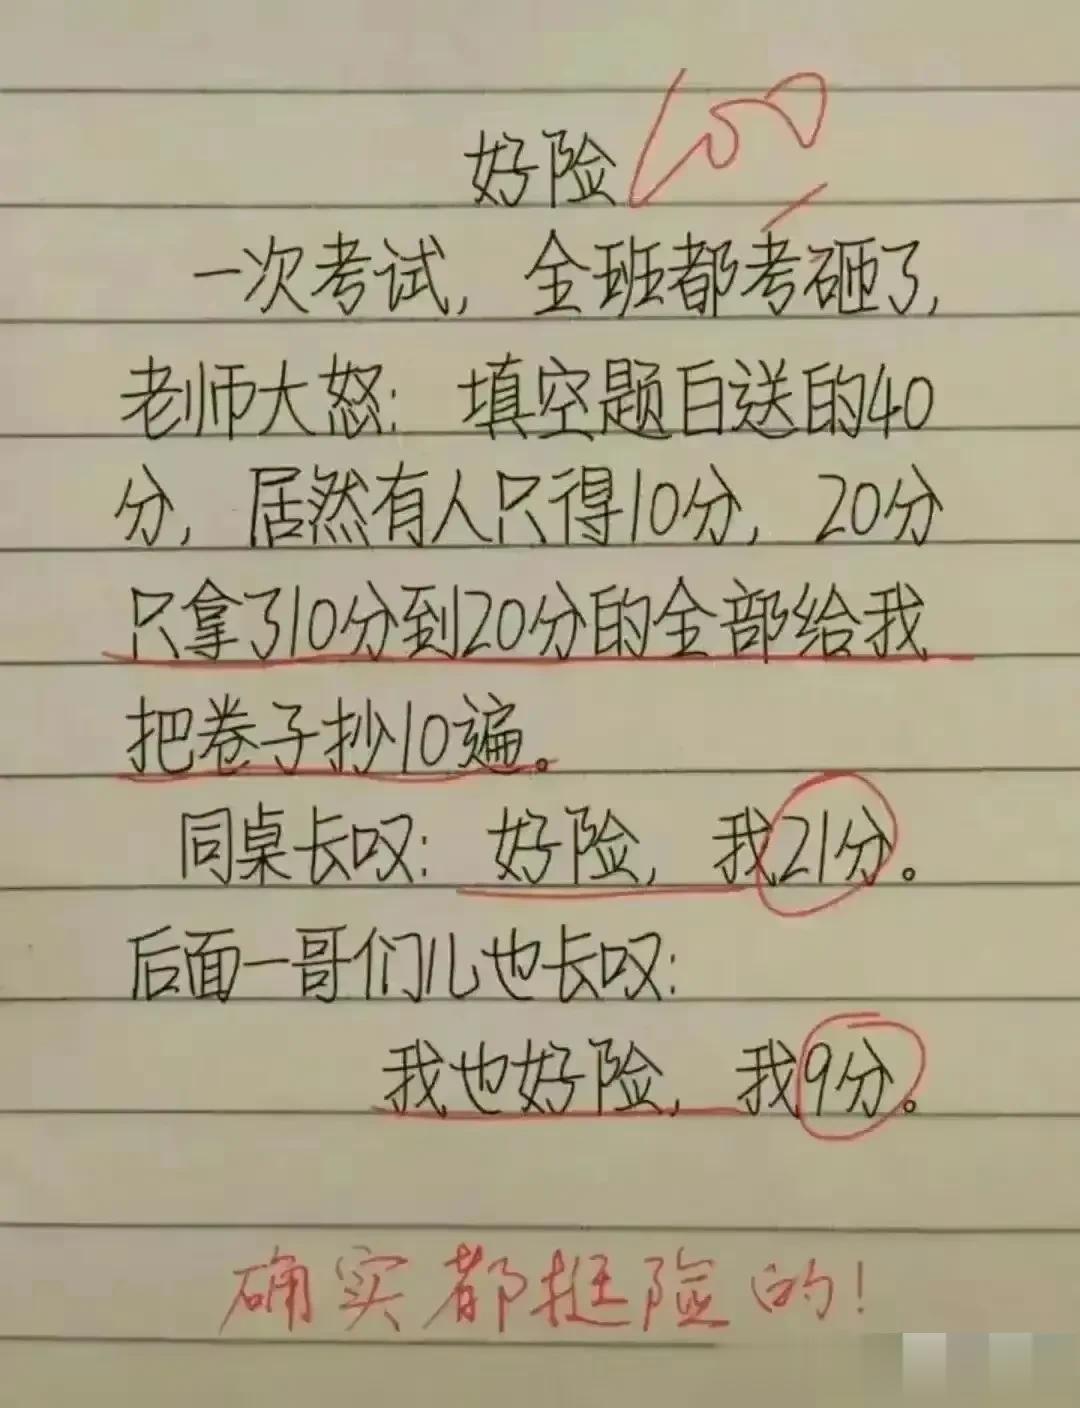 好险 100
一次考试，全班都考砸了，
老师大怒：填空题白送的40
分，居然有人只得10分，20分
只拿了10分到20分的全部给我
把卷子抄10遍。
同桌长叹：好险，我21分。
后面一哥们儿也长叹：
我也好险，我9分。
确实都挺险的！